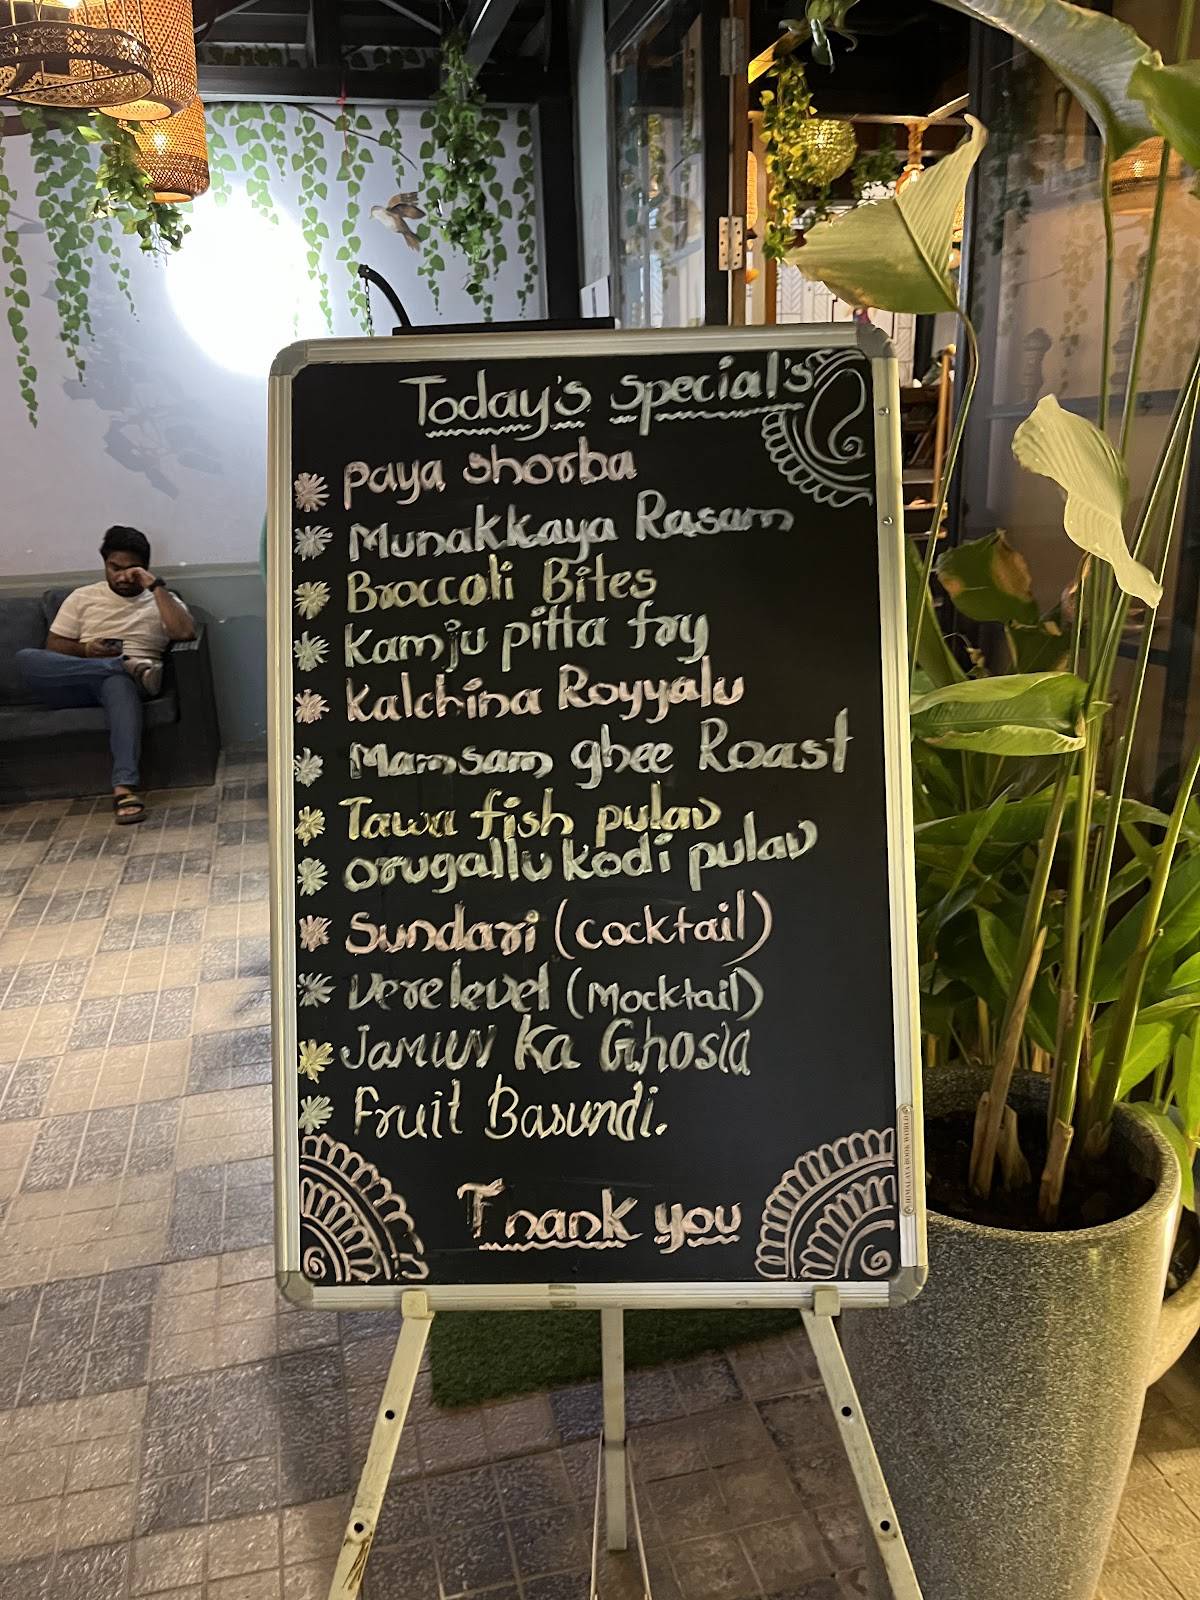 Today's Special's
Paya Shorba
Munakkaya Rasam
Broccoli Bites
Kamju pitta fry
Kalchina Royyalu
Mamsam ghee Roast
Tawa fish pulav
Orugallu kodi pulav
Sundari (cocktail)
Vere level (Mocktail)
Jamun Ka Ghosla
Fruit Basundi.
Thank you
HIMALAYA BOOK WORLD